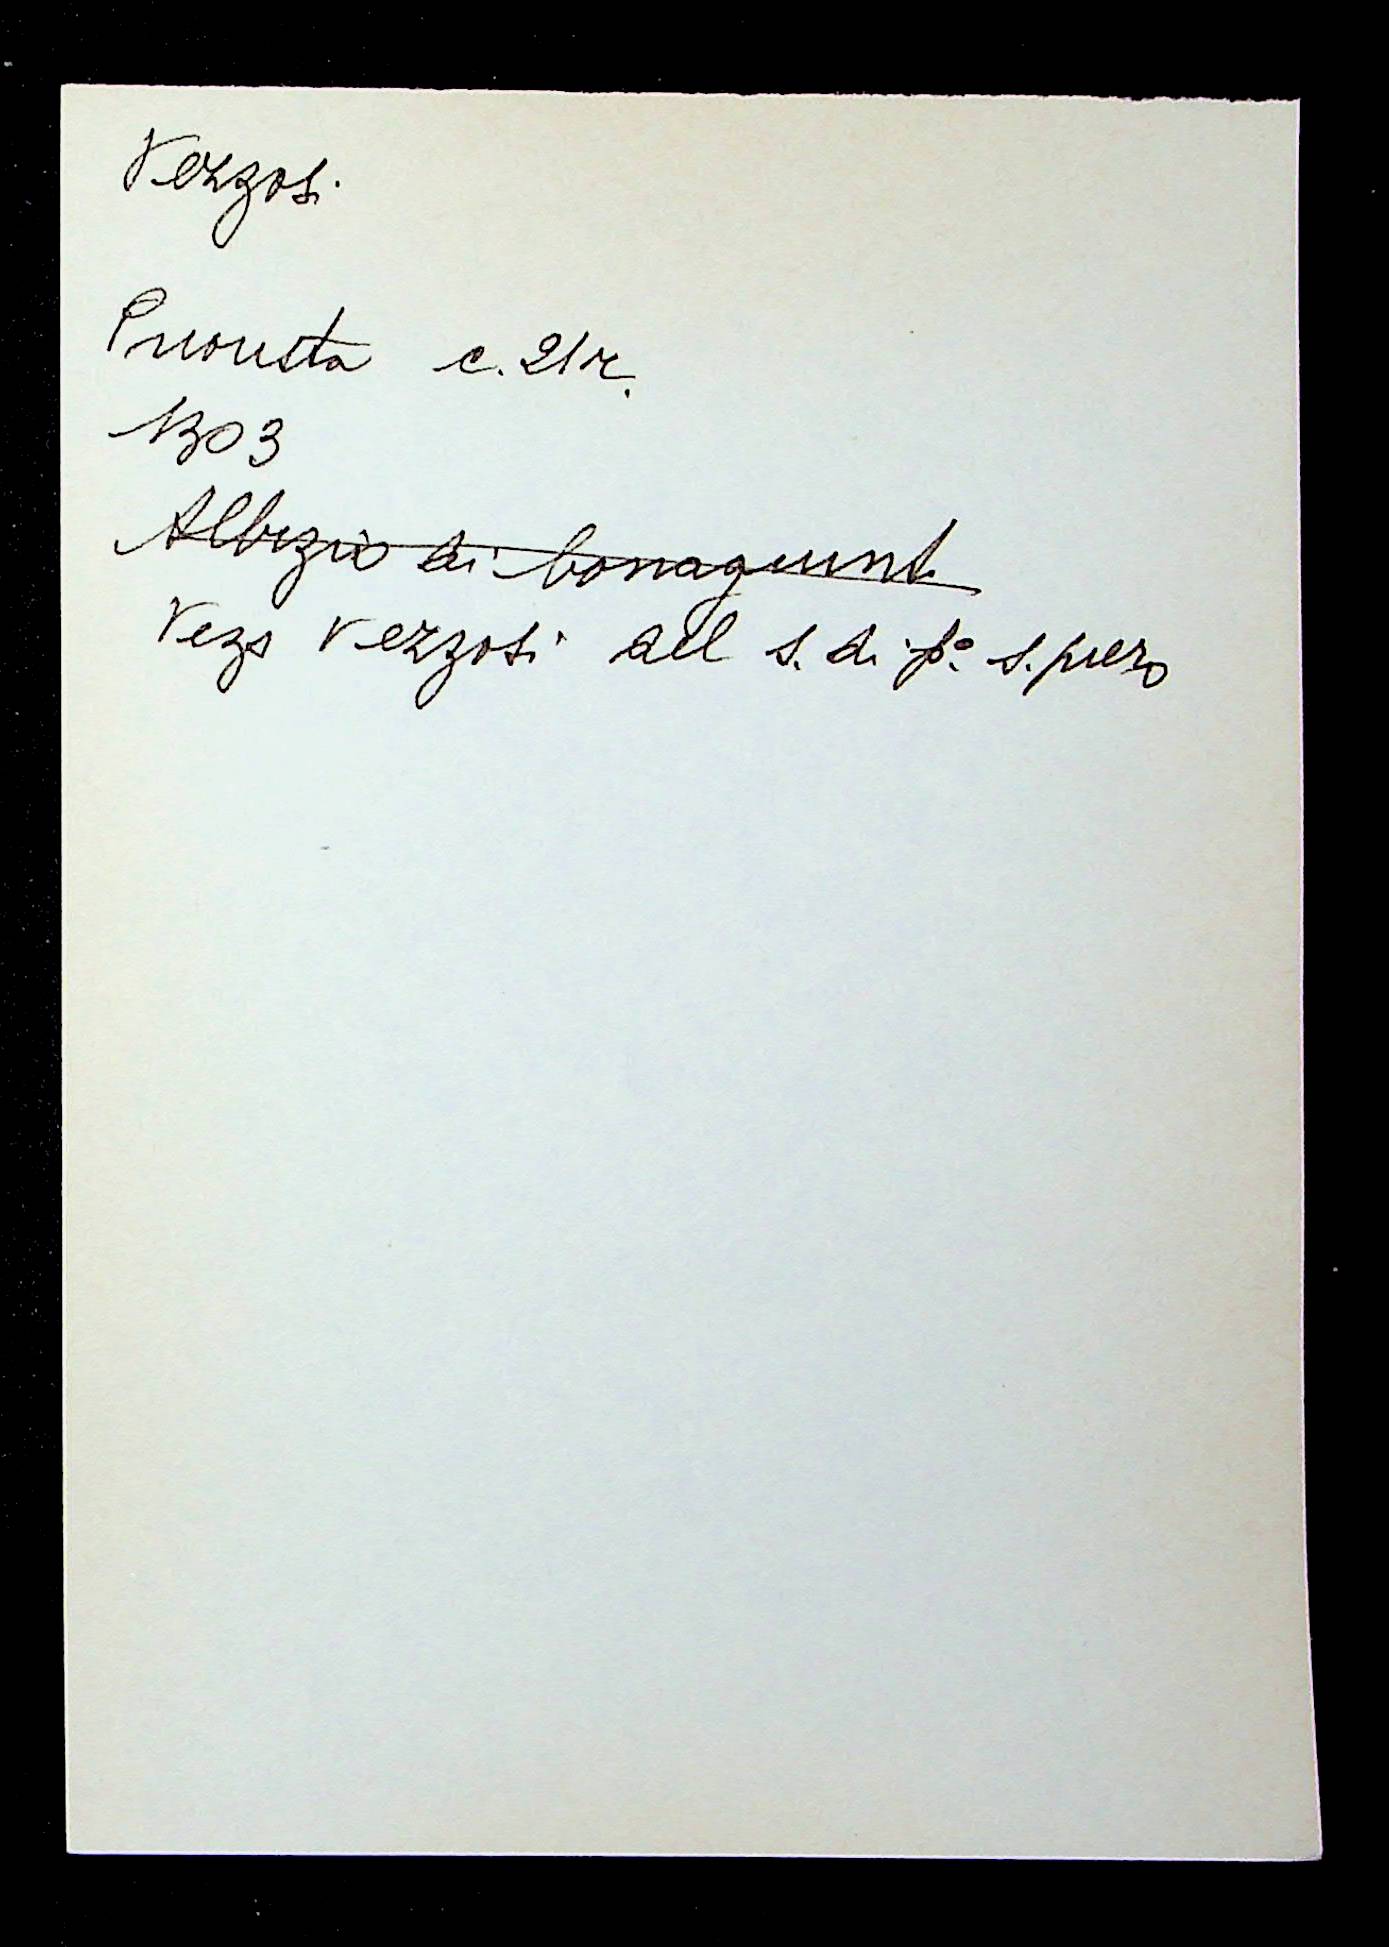 Vezzosi
Priorista c. 21r.
1303
Albizio di bonagiunt.
Vezo Vezzosi del s. di p.º s. piero